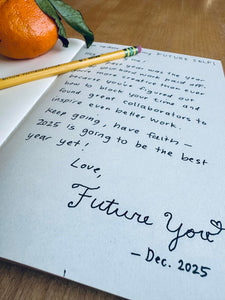 FUTURE SELF!
year was the year
your hard work paid off,
more creative than ever
because you've figured out
how to block your time and
found great collaborators to
inspire even better work.
Keep going, have faith –
2025 is going to be the best
year yet!
Love,
Future You
– Dec. 2025